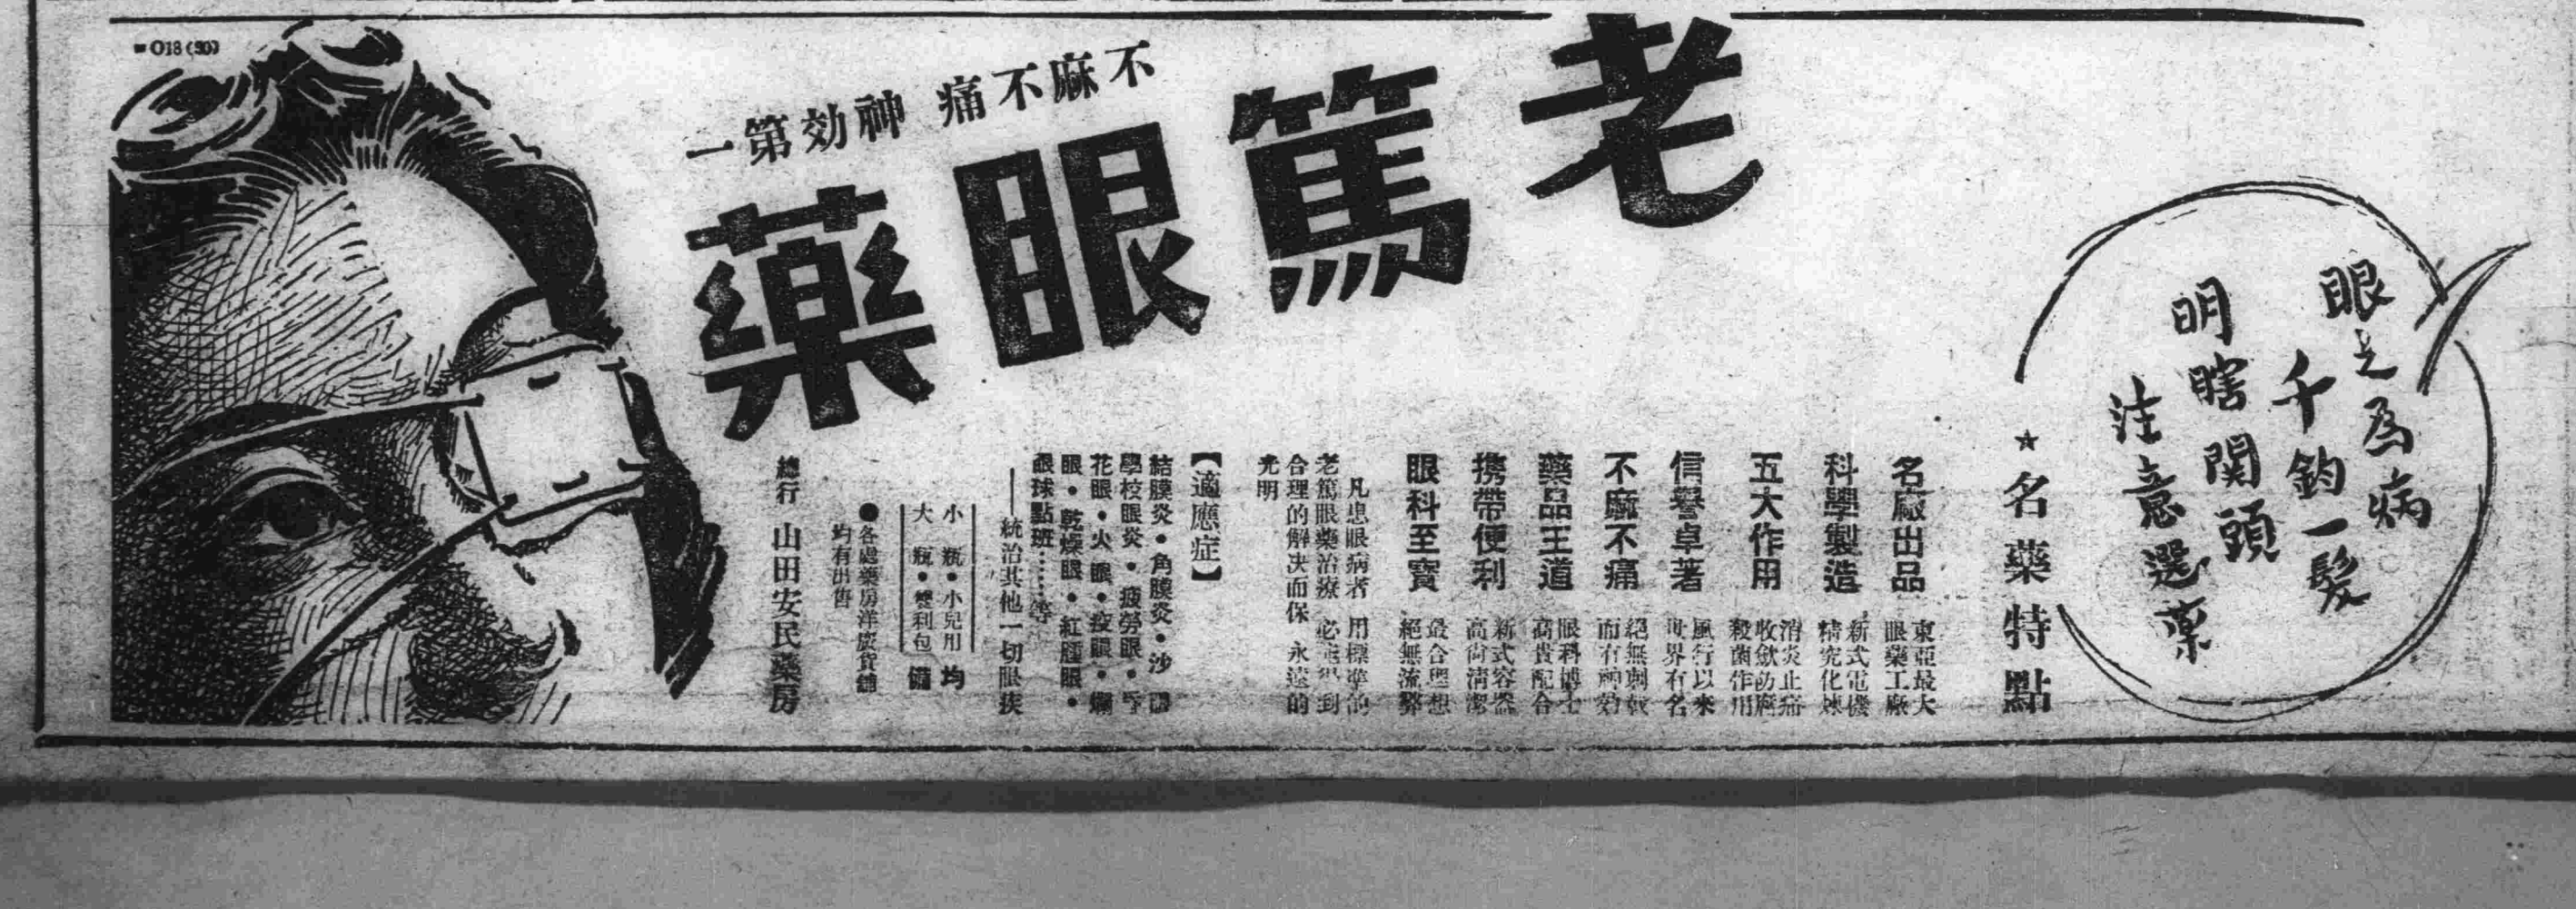 眼之為病
千鈞一髮
明瞎関頭
注意選藥
老篤眼藥
不麻不痛 神効第一
★名藥特點
名廠出品
東亞最大
眼藥工廠
科學製造
新式電機
精究化煉
五大作用
消炎止痛
收歛防腐
殺菌作用
信譽卓著
風行以來
世界有名
不麻不痛
絕無刺戟
而有神効
藥品王道
眼科博士
高貴配合
携帶便利
新式容器
高尚清潔
眼科至寶
最合理想
絕無流弊
凡患眼病者 用標準的
老篤眼藥治療 必能得到
合理的解决而保 永遠的
光明
【適應症】
結膜炎•角膜炎•沙眼
學校眼炎•疲勞眼•昏
花眼•火眼•疫眼•爛
眼•乾燥眼•紅腫眼•
眼球點斑……等
──統治其他一切眼疾
小瓶•小兒用
大瓶•雙利包
均備
●各處藥房洋廣貨舖
均有出售
總行 山田安民藥房
018(30)